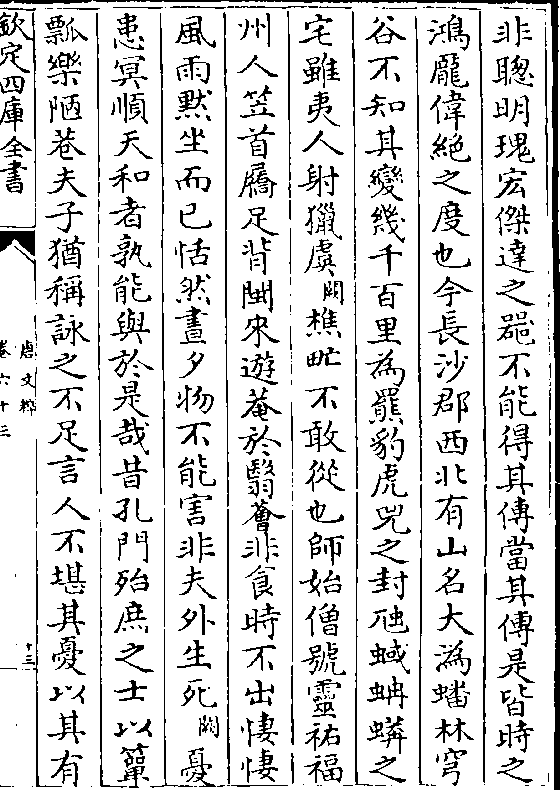 非聰明瑰宏傑達之器不能得其傳當其傳是皆時之
鴻龐偉絶之度也今長沙郡西北有山名大溈蟠林穹
谷不知其變幾千百里為羆豹虎兕之封虺蜮蚺蟒之
宅雖夷人射獵虞闕樵甿不敢從也師始僧號靈祐福
州人笠首屩足背閩來遊菴於翳薈非食時不出悽悽
風雨默坐而已恬然晝夕物不能害非夫外生死闕憂
患冥順天和者孰能與於是哉昔孔門殆庶之士以簞
瓢樂陋巷夫子猶稱詠之不足言人不堪其憂以其有
欽定四庫全書
唐文粹
卷六十三
十三